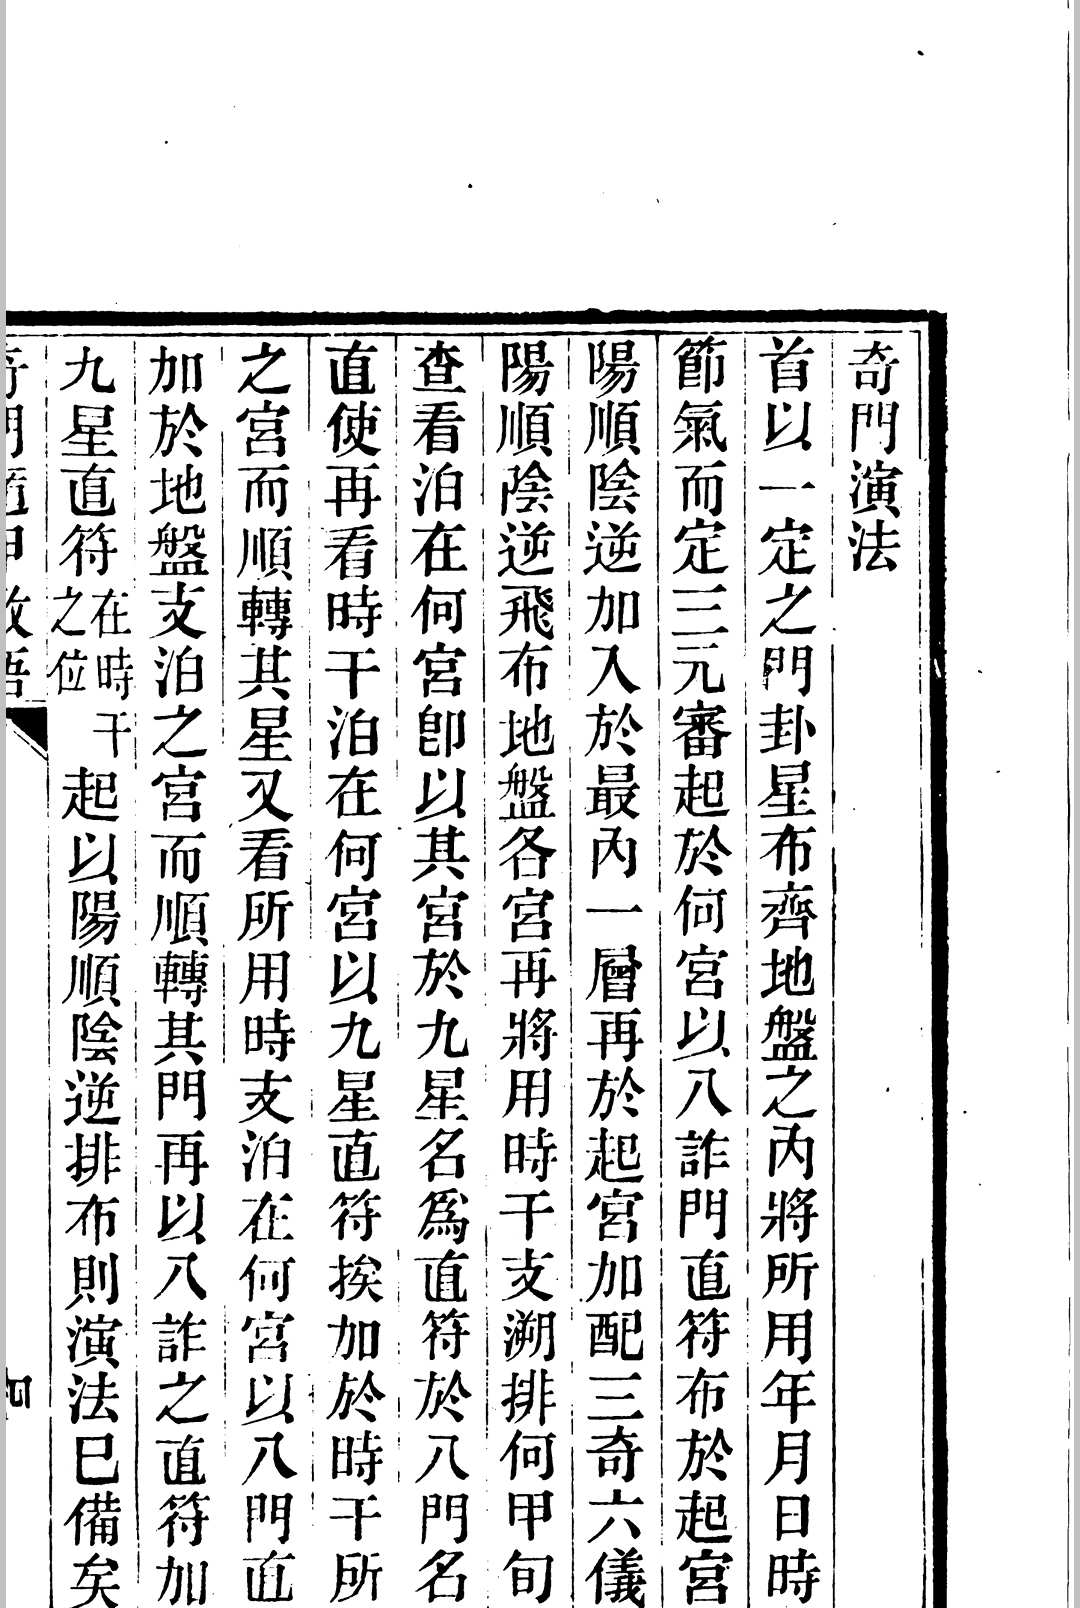 奇門演法
首以一定之門卦星布齊地盤之內將所用年月日時
節氣而定三元審起於何宮以八詐門直符布於起宮
陽順陰逆加入於最內一層再於起宮加配三奇六儀
陽順陰逆飛布地盤各宮再將用時干支溯排何甲旬
查看泊在何宮卽以其宮於九星名爲直符於八門名
直使再看時干泊在何宮以九星直符挨加於時干所
之宮而順轉其星又看所用時支泊在何宮以八門直
加於地盤支泊之宮而順轉其門再以八詐之直符加
九星直符在時干之位起以陽順陰逆排布則演法已備矣